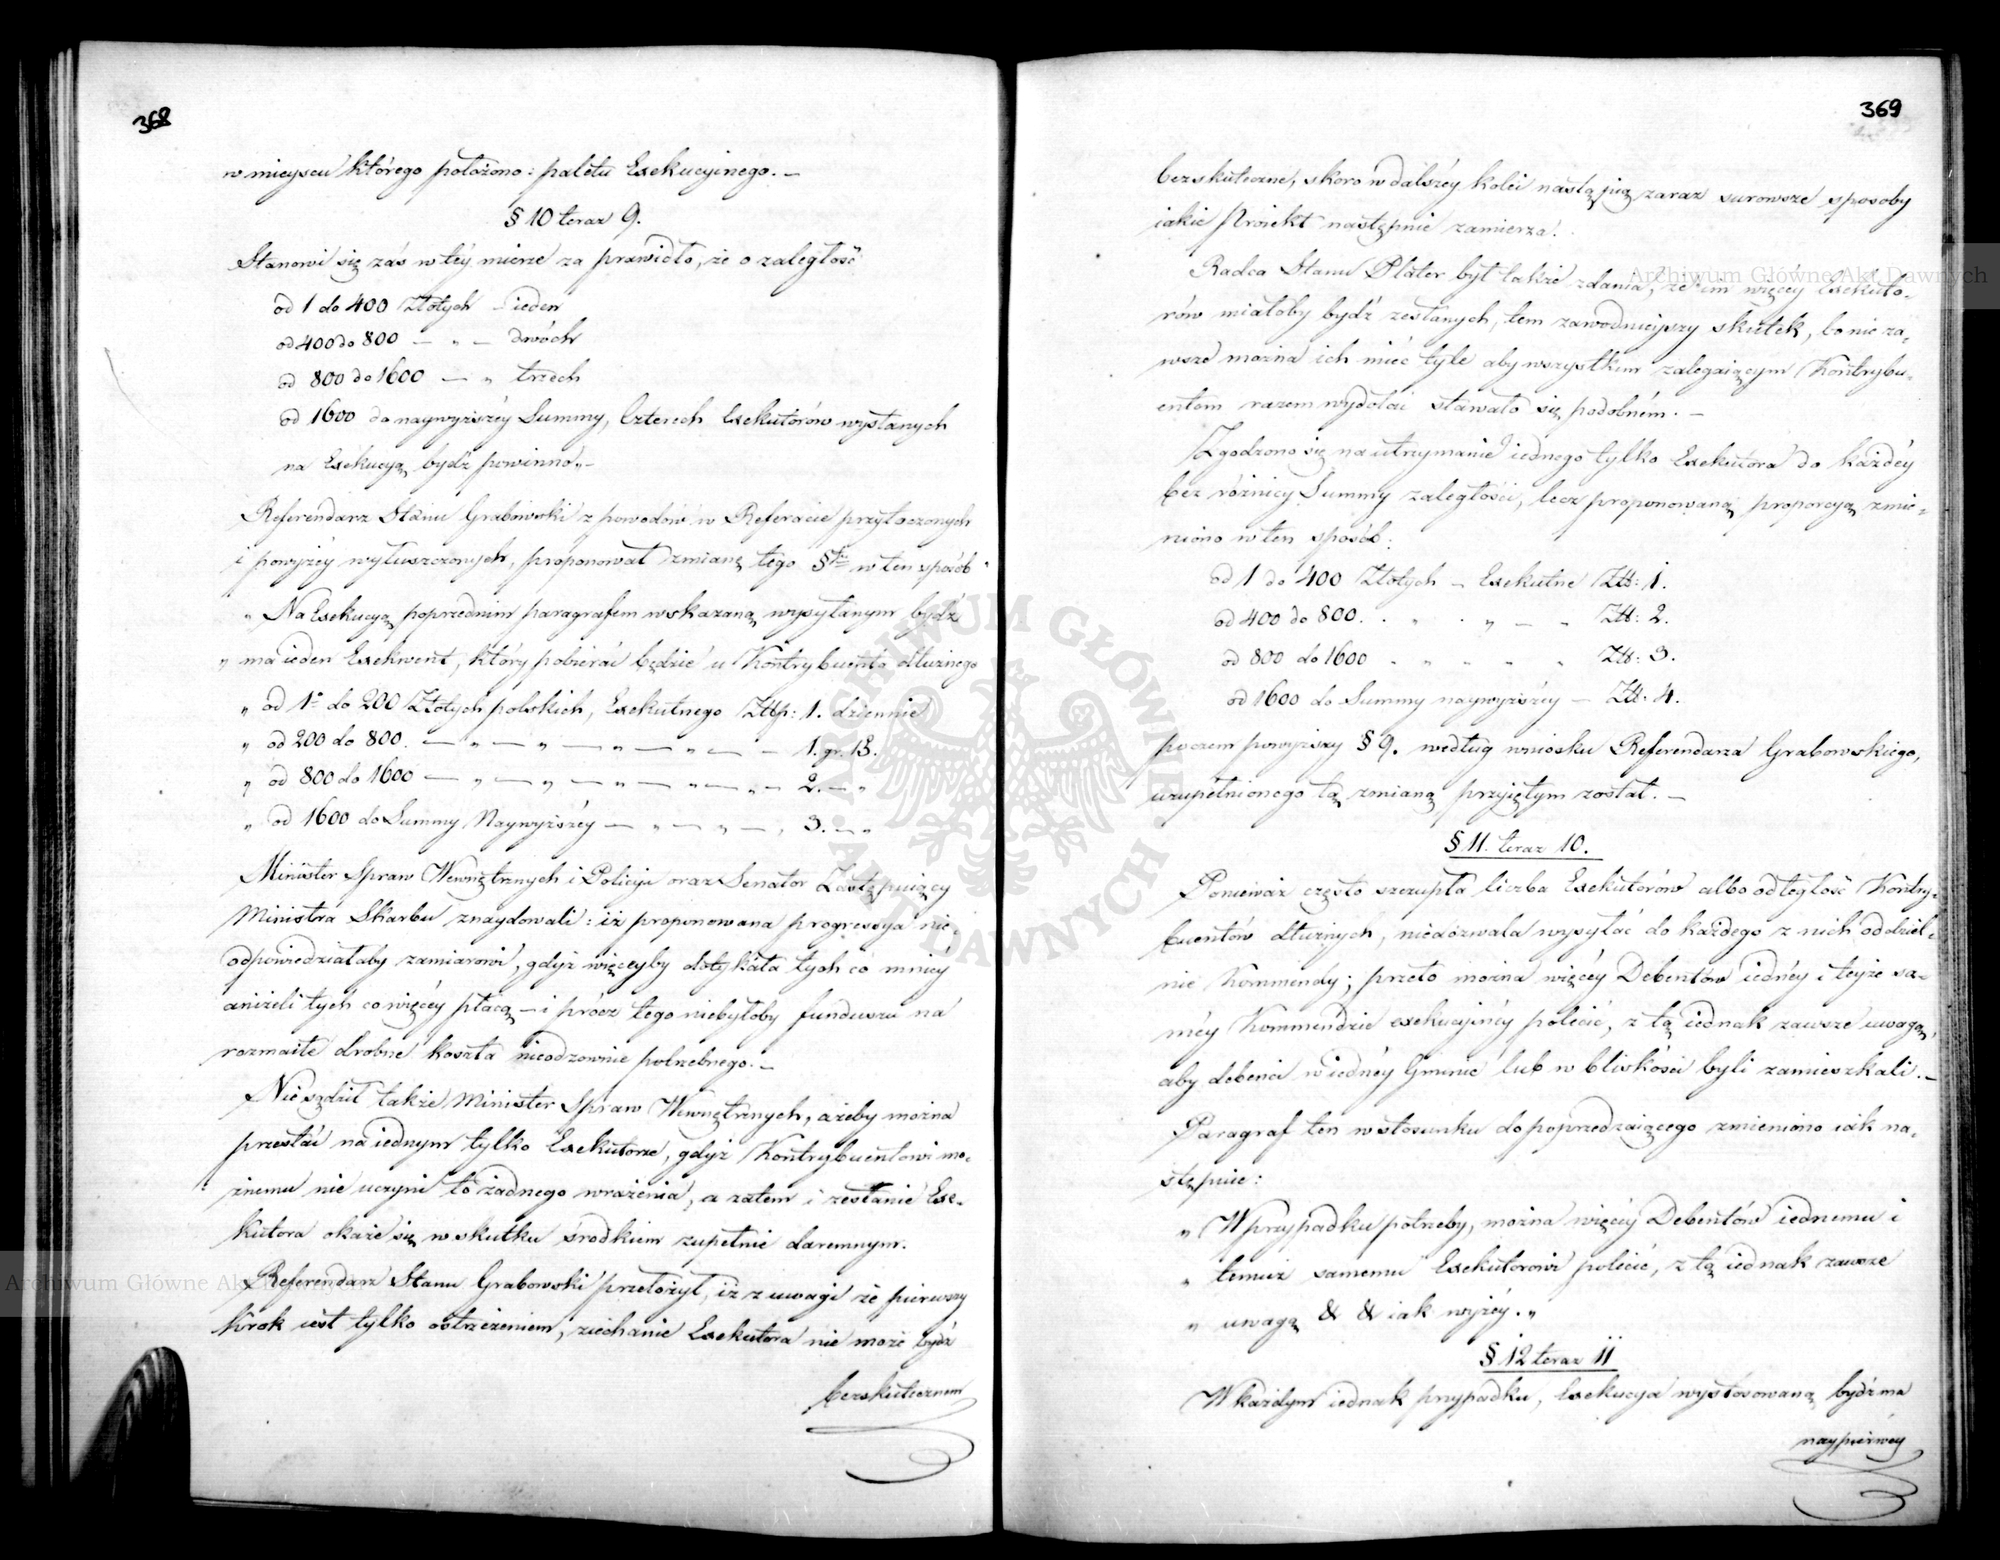 368
w mieyscu którego położono: paletu Exekucyinego. —
§ 10 teraz 9.
Stanowi się zaś w téy mierze za prawidło, że o zaległość
od 1 do 400 Złotych — ieden
od 400 do 800 — „ — dwóch
od 800 do 1600 — „ trzech
od 1600 do naywyższéy Summy, Czterech Exekutorów wysłanych
na Exekucyą bydź powinno„—
Referendarz Stanu Grabowski z powodów w Referacie przytoczonych
i powyżéy wyłuszczonych, proponował zmianę tego §fu w ten sposób
„ Na Exekucyą poprzednim paragrafem wskazaną wysyłanym bydź
„ ma ieden Exekwent, który pobierać będzie u Kontrybuenta dłużnego
„ od 1° do 200 Złotych polskich, Exekutnego Złłp: 1. dziennie
„ od 200 do 800. — „ — „ — „ — „ — 1. gr. 15.
„ od 800 do 1600 — „ — „ — „ — „ — 2. — „
„ od 1600 do Summy Naywyższéy — „ — „ — „ 3. — „
Minister Spraw Wewnętrznych i Policyi oraz Senator Zastępuiący
Ministra Skarbu znaydowali: iż proponowana progressya nie
odpowiedziałaby zamiarowi, gdyż więceyby dotykała tych co mniey
aniżeli tych co więcéy płacą — i prócz tego niebyłoby funduszu na
rozmaite drobne koszta nieodzownie potrzebnego. —
Nie sądził także Minister Spraw Wewnętrznych, ażeby można
przestać na iednym tylko Exekutorze, gdyż Kontrybuentowi mo-
żnemu nie uczyni to żadnego wrażenia, a zatem i zesłanie Exe-
kutora okaże się w skutku środkiem zupełnie daremnym.
Referendarz Stanu Grabowski przełożył, iż z uwagi że pierwszy
krok iest tylko ostrzeżeniem, ziechanie Exekutora nie może bydź
bezskutecznem
369
bezskuteczne, skoro w dalszéy kolei nastąpią zaraz surowsze sposoby
iakie Proiekt następnie zamierza.
Radca Stanu Plater był także zdania, że im więcéy Exekuto-
rów miałoby bydź zesłanych, tem zawodnieyszy skutek, bo nie za-
wsze można ich mieć tyle aby wszystkim zalegaiącym Kontrybu-
entom razem wydołać stawało się podobném. —
Zgodzono się na utrzymanie iednego tylko Exekutora do każdéy
bez różnicy Summy zaległości, lecz proponowaną proporcyą zmie-
niono w ten sposób:
od 1 do 400 Złotych — Exekutne Złł: 1.
od 400 do 800. . „ . „ — „ Złł: 2.
od 800 do 1600 . „ „ „ „ Złł: 3.
od 1600 do Summy naywyższéy — Złł: 4.
poczem powyższy § 9. według wniosku Referendarza Grabowskiego,
uzupełnionego tą zmianą przyiętym został. —
§ 11. teraz 10.
Ponieważ często szczupła liczba Exekutorów albo odległość Kontry-
buentów dłużnych, niedozwala wysyłać do każdego z nich oddziel-
nie Kommendy; przeto można więcéy Debentów iednéy i teyże sa-
méy Kommendzie exekucyinéy polecić, z tą iednak zawsze uwagą,
aby debenci w iednéy Gminie lub w bliskości byli zamieszkali. —
Paragraf ten w stosunku do poprzedzaiącego zmieniono iak na-
stępuie:
„ W przypadku potrzeby, można więcéy Debentów iednemu i
„ temuż samemu Exekutorowi polecić, z tą iednak zawsze
„ uwagą & & iak wyżéy. „
§ 12 teraz 11
W każdym iednak przypadku, Exekucya wystosowaną bydź ma
nayprierwéy
Archiwum Główne Akt Dawnych
Archiwum Główne Akt Dawnych
ARCHIWUM GŁÓWNE AKT DAWNYCH